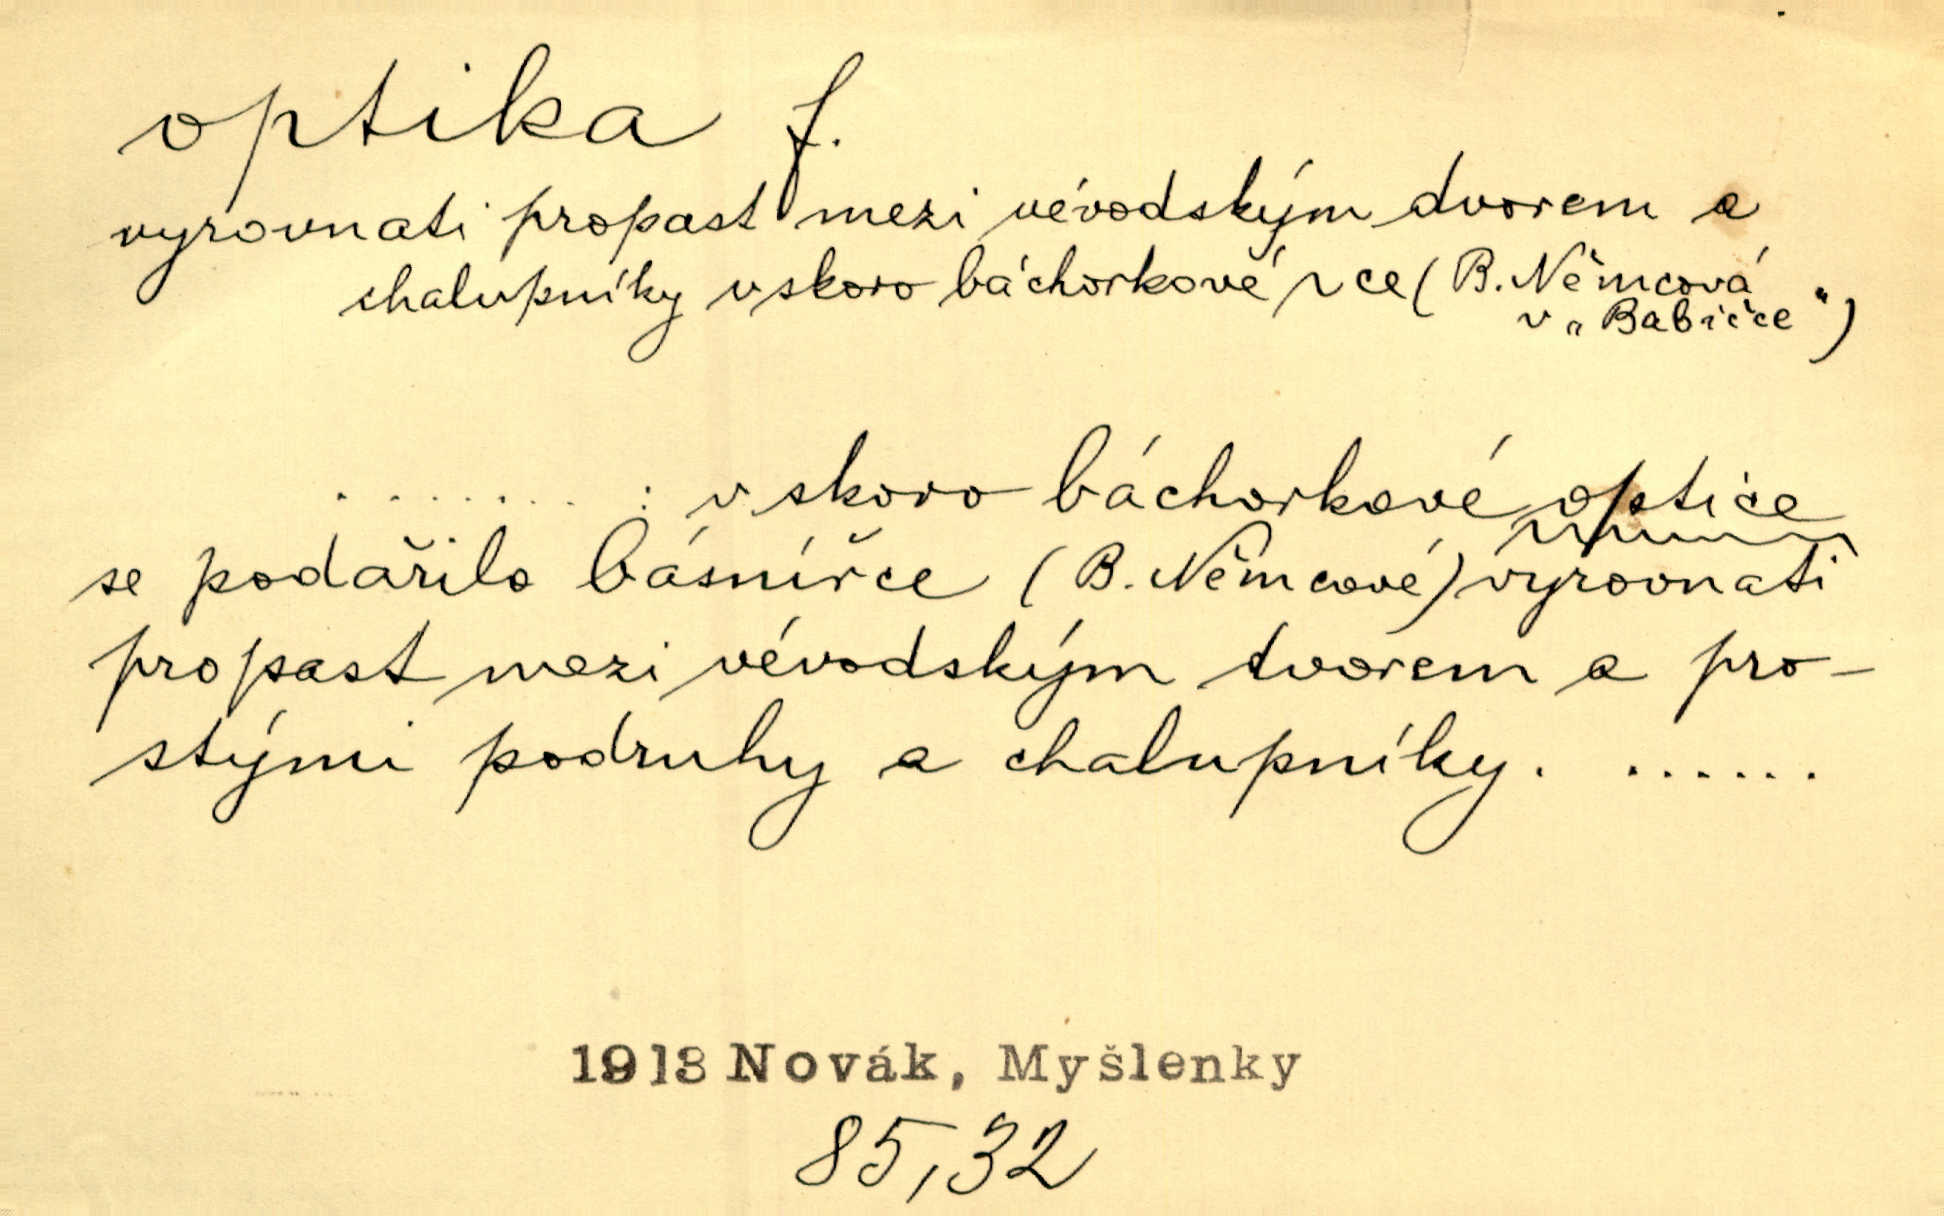 optika f.
vyrovnati propast mezi vévodským dvorem a
chalupníky v skoro báchorkové ~ce (B. Němcová
v „Babičce")
. . . . . . . : v skoro báchorkové optice
se podařilo básnířce (B. Němcové) vyrovnati
propast mezi vévodským dvorem a pro-
stými podruhy a chalupníky. ......
1913 Novák, Myšlenky
85,32